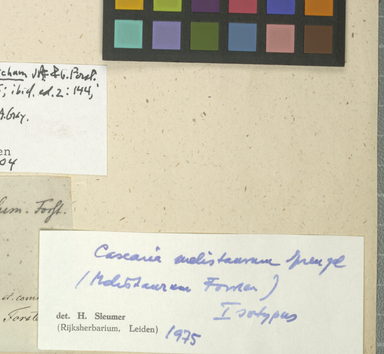 & G. Forst.
; ibid. ed. 2: 144,
A. Gray.
en
04
Forst.
Casearia melistaurum Sprengel
(Melistaurum Forster)
Isotypus
det. H. Sleumer
(Rijksherbarium, Leiden)
1975